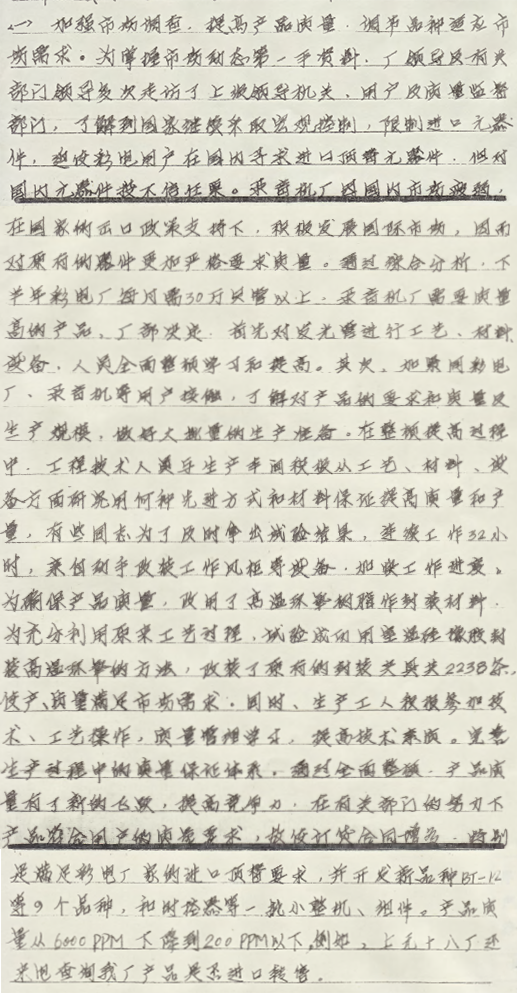 (一) 加强市场调查，提高产品质量，调节品种适应市
场需求。为掌握市场动态第一手资料，厂领导及有关
部门领导多次走访了上级领导机关、用户及质量监督
部门，了解到国家继续采取宏观控制，限制进口元器
件，迫使彩电用户在国内寻求进口顶替元器件，但对
国内元器件技术信任果。录音机厂因国内市场疲软，
在国家的出口政策支持下，积极发展国际市场，因而
对原有的器件更加严格要求质量。通过综合分析，下
半年彩电厂每月需30万只管以上，录音机厂需要质量
高的产品。厂部决定，首先对发光管进行工艺、材料
设备、人员全面整顿学习和提高。其次，加紧同彩电
厂、录音机等用户接触，了解对产品的要求和质量及
生产规模，做好大批量的生产准备。在整顿提高过程
中，工程技术人员与生产车间积极从工艺、材料、设
备方面研究用何种先进方式和材料保证提高质量和产
量，有些同志为了及时拿出试验结果，连续工作32小
时，亲自动手改装工作风柜等设备，加快工作进度。
为确保产品质量，改用了高温环氧树脂作封装材料，
为充分利用原来工艺过程，试验成功用室温硅橡胶封
装高温环氧的方法，改装了原有的封装夹具共2238条，
使产、质量满足市场需求。同时、生产工人积极参加技
术、工艺操作，质量管理学习，提高技术素质。完善
生产过程中的质量保证体系。通过全面整顿，产品质
量有了新的飞跃，提高竞争力，在有关部门的努力下
产品符合用户的质量要求，故使订货合同增多，特别
是满足彩电厂家的进口顶替要求，并开发新品种BT-12
等9个品种，和时控器等一批小整机、组件。产品质
量从6000PPM下降到200PPM以下，例如，上无十八厂还
来电查询我厂产品是否进口软管。